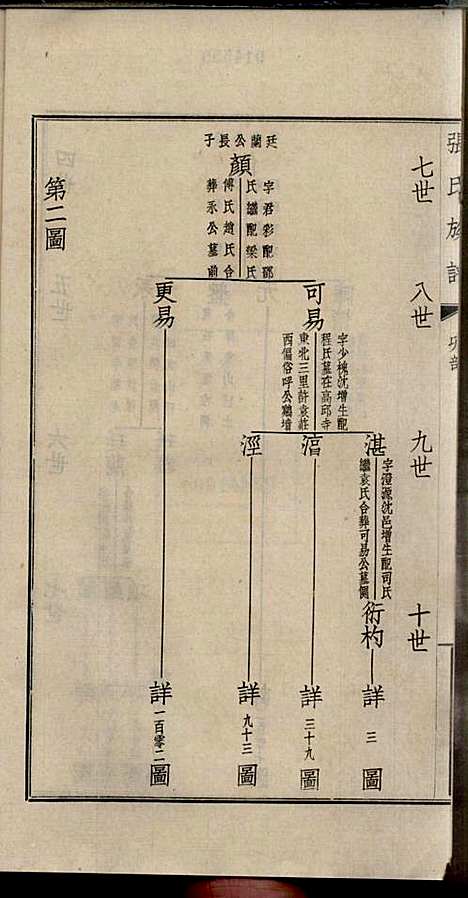 張氏族譜
七世
八世
九世
十世
廷蘭公長子
顏
字君彩配邵
氏繼配梁氏
傅氏趙氏合
葬永公墓前
可易
字少槐沈增生配
程氏墓在高邱寺
東北三里許袁莊
西偏俗呼公鷄墳
更易
湛
字澄源沈邑增生配司氏
繼袁氏合葬可易公墓側
衍杓
詳三圖
湆
詳三十九圖
涇
詳九十三圖
詳一百零二圖
第二圖